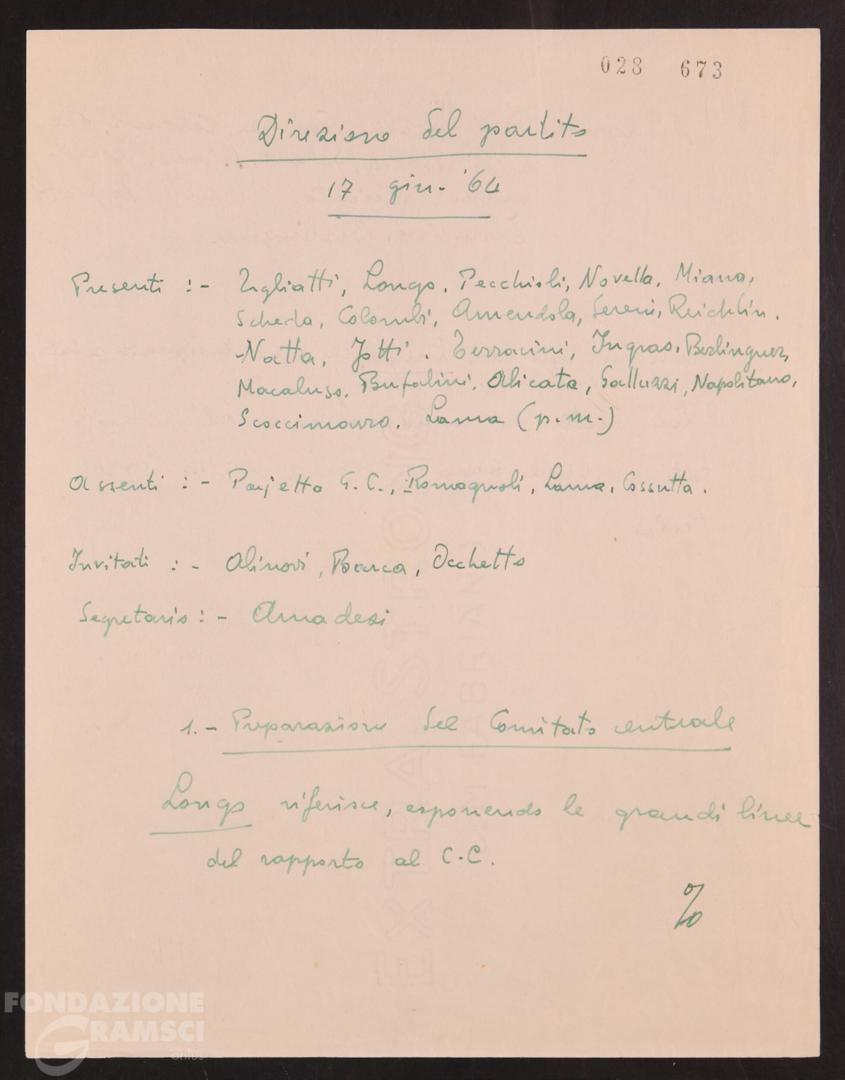 028 673
Direzione del partito
17 giu. '64
Presenti :- Togliatti, Longo, Pecchioli, Novella, Miana,
Scheda, Colombi, Amendola, Sereni, Reichlin.
Natta, Jotti. Terracini, Ingrao, Berlinguer,
Macaluso, Bufalini, Alicata, Galluzzi, Napolitano,
Scoccimarro. Lama (p.m.)
Assenti :- Pajetta G.C., Romagnoli, Lama, Cossutta.
Invitati :- Alinovi, Barca, Occhetto
Segretario :- Amadesi
1.- Preparazione del Comitato centrale
Longo riferisce, esponendo le grandi linee
del rapporto al C.C.
%
FONDAZIONE
GRAMSCI